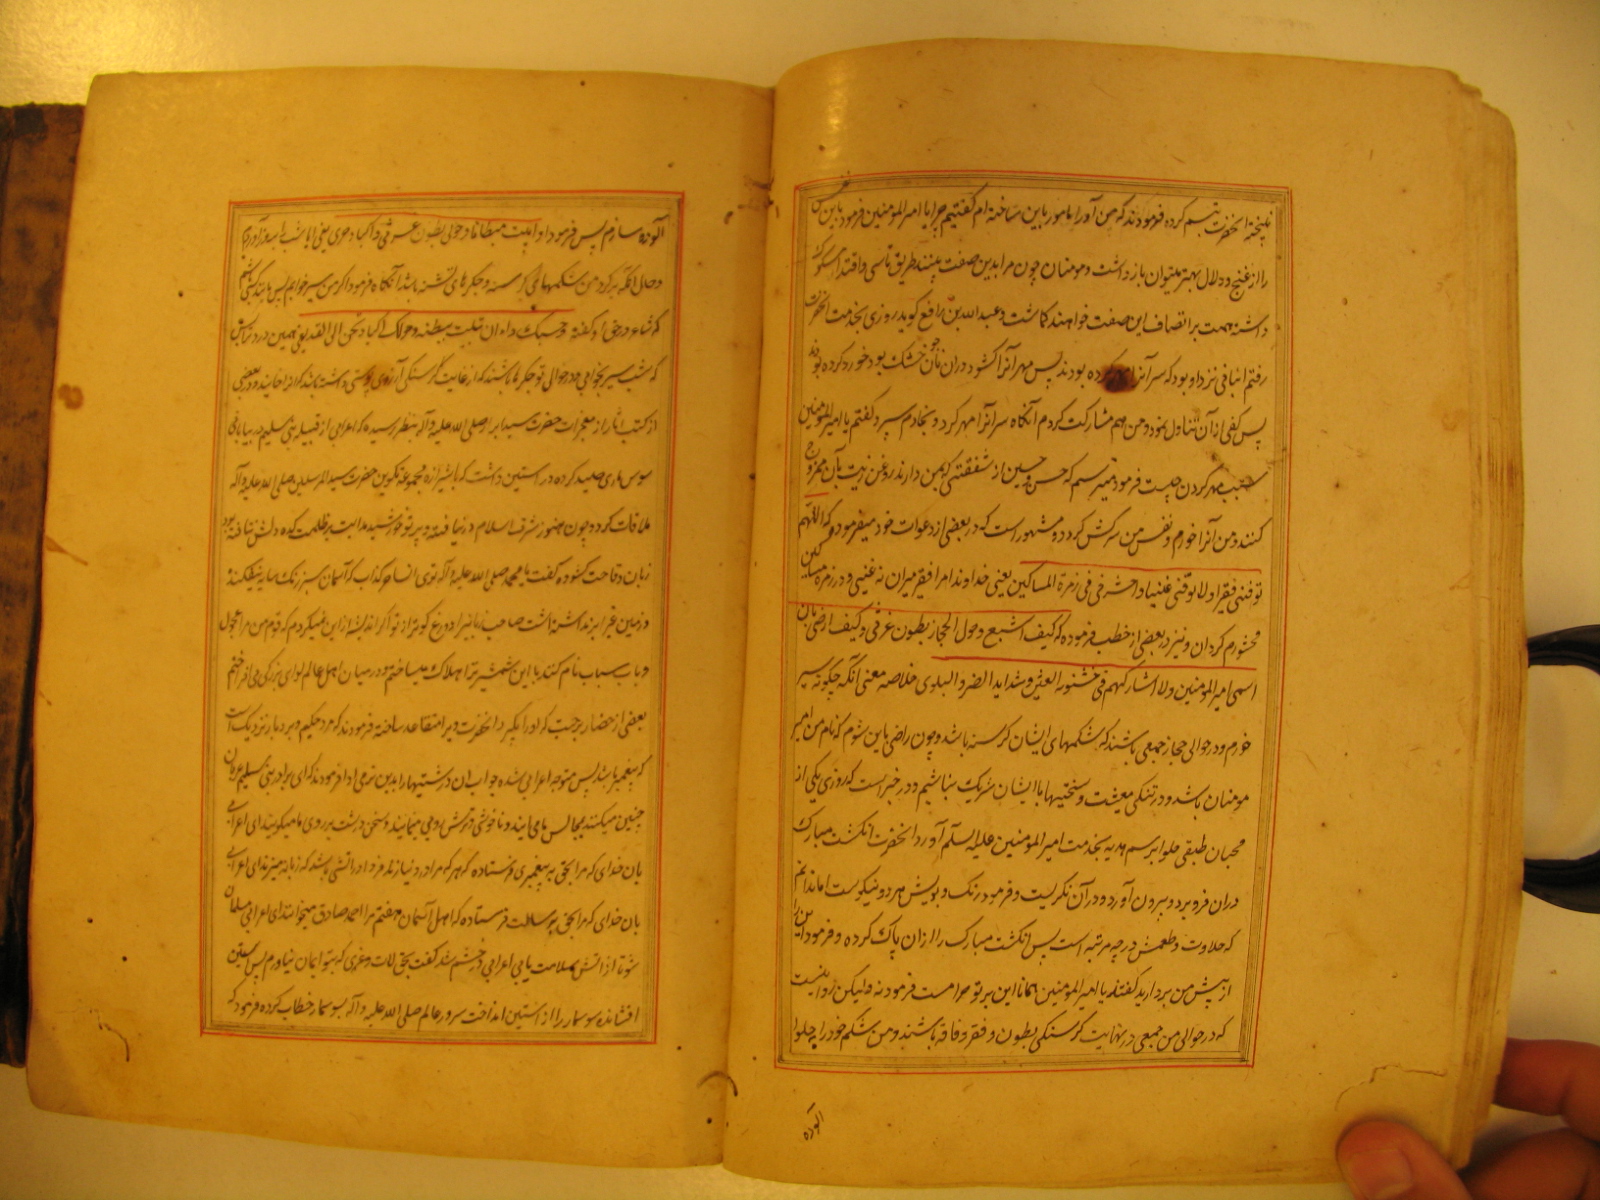 آنحضرت تبسم کرده فرمودند که من او را مامور باین ساخته ام گفتیم چرا یا امیرالمؤمنین فرمود باین
را از غنج و دلال بهتر میتوان بازداشت و مومنان چون مرا بدین صفت بینند طریق تاسی و اقتدا مسلوک
داشته همت بر اتصاف این صفت خواهند کماشت و عبدالله بن رافع گوید روزی بخدمت آنحضرت
رفتم انبانی نزد او بود که سر آنرا مهر کرده بودند پس مهر آنرا گشود در آن نان جو خشک بود خورد کرده بود
پس کفی از آن تناول نمود و من هم مشارکت کردم آنگاه سر آنرا مهر کرد و بخادم سپرد گفتم یا امیرالمومنین
سبب مهر کردن چیست فرمود میترسم که حسن و حسین از شفقتی که بمن دارند روغن زیت بآن ممزوج
کنند و من آنرا خورم و نفس من سرکش کردد و مشهور است که در بعضی از دعوات خود میفرموده که اللهم
توفنی فقیرا و لا توفنی غنیا و احشرنی فی زمرة المساکین یعنی خداوندا مرا فقیر میران نه غنی و در زمره مساکین
محشورم کردان و نیز در بعضی از خطب فرموده که کیف اشبع و حول الحجاز بطون غرثی و کیف ارضی بان
اسمی امیرالمؤمنین و لا اشارکهم فی خشونة العیش و شداید الضر و البلوی خلاصه معنی آنکه چگونه سیر
خورم و در حوالی حجاز جمعی باشند که شکمهای ایشان گرسنه باشد و چون راضی باین شوم که نام من امیر
مومنان باشد و در تنگی معیشت و سختیها با ایشان شریک نباشیم و در خبر است که روزی یکی از
محبان طبقی حلوا برسم هدیه بخدمت امیرالمؤمنین علیه السلام آورد آنحضرت انگشت مبارک
در آن فرو برد و بیرون آورد و در آن نگریست و فرمود رنگ و بویش هر دو نیکوست اما ندانم
که حلاوت و طعمش در چه مرتبه است پس انگشت مبارک را از آن پاک کرده و فرمود این را
از پیش من بردارید گفتند یا امیرالمومنین همانا این بر تو حرامست فرمود نه ولیکن روا نیست
که در حوالی من جمعی در نهایت گرسنگی بطون و فقر و فاقه باشند و من شکم خود را بحلوا
آلوده
آلوده سازم پس فرمود او ابیت مبطانا و حولی بطون غرثی و اکباد حری یعنی ایا شب بروز آورم
و حال آنکه بر گرد من شکمهای گرسنه و جگرهای تشنه باشد آنگاه فرمود اگر من سیر خوابم پس باشم
که شاعر در حق او گفته و حسبک داء ان تبیت ببطنة و حولک اکباد تحن الی القد یعنی همین درد ترا بس
که شب سیر بخوابی و در حوالی تو جگرها باشند که از غایت گرسنگی آرزوی پوستی داشته باشند و در بعضی
از کتب از معجزات حضرت سید ابرار صلی الله علیه و آله بنظر رسیده که اعرابی از قبیله بنی سلیم در بیابانی
سوسماری صید کرده در آستین داشت حضرت سید المرسلین صلی الله علیه و آله
ملاقات کرد و چون هنوز شرف اسلام در نیافته و پرتو خورشید هدایت بر ظلمت کده دلش نتافته بود
زبان وقاحت گشوده گفت یا محمد صلی الله علیه و آله توی آن ساحر کذاب که آسمان سبز رنگ سایه نیفکنده
و زمین غبرا برنداشته است صاحب زبانیرا دروغ گوتر از تو اگر اندیشه از این نمیکردم که قوم من مرا عجول
نام کنند با این شمشیر ترا هلاک میساختم و در میان اهل عالم لوای بزرگی می افراختم
بعضی از حضار برجست که او را بگیرد آنحضرت ویرا متقاعد ساخته فرمودند که مرد حکیم و بردبار نزدیک است
که پیغمبر باشد پس متوجه اعرابی شده جواب آن درشتیها را بدین نرمی ادا فرمودند که ای برادر بنی سلیم عربان
چنین میکنند بمجالس ما می ایند و ناخوشی و ترشرویی مینمایند و سخن درشت بر روی ما میگویند ای اعرابی
بان خدای که مرا بحق به پیغمبری فرستاده که هر که مرا در دنیا نیازارد فردا در آتشی باشد که زبانه میزند ای اعرابی
بان خدای که مرا بحق برسالت فرستاده که اهل آسمان هفتم مرا احمد صادق میخوانند ای اعرابی مسلمان
شو تا از آتش بسلامت یابی اعرابی در خشم شد گفت بحق لات و عزی که بتو ایمان نیاورم پس آستین
افشانده سوسمار را از آستین انداخت سرور عالم صلی الله علیه و آله بسوسمار خطاب کرده فرمود که